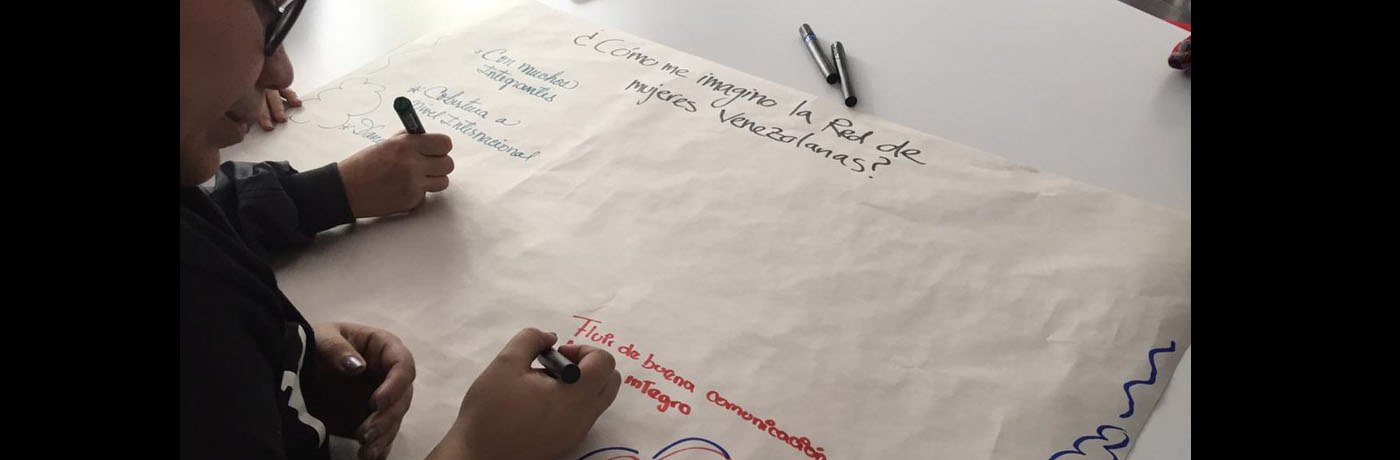 ¿Cómo me imagino la Red de
mujeres Venezolanas?
* Con muchos
Integrantes
* Cobertura a
nivel Internacional
*
Fluir de buena comunicación
integro